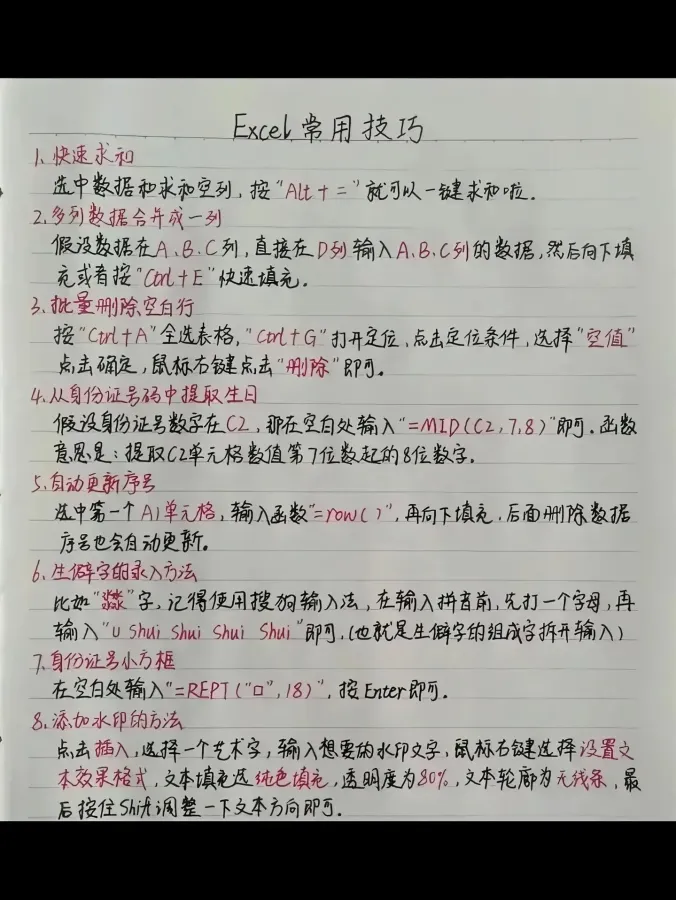 Excel 常用技巧
1、快速求和
选中数据和求和空列，按"Alt+="就可以一键求和啦。
2、多列数据合并成一列
假设数据在A、B、C列，直接在D列输入A、B、C列的数据，然后向下填
充或者按"Ctrl+E"快速填充。
3、批量删除空白行
按"Ctrl+A"全选表格，"Ctrl+G"打开定位，点击定位条件，选择"空值"
点击确定，鼠标右键点击"删除"即可。
4、从身份证号码中提取生日
假设身份证号数字在C2，那在空白处输入"=MID(C2,7,8)"即可。函数
意思是：提取C2单元格数值第7位数起的8位数字。
5、自动更新序号
选中第一个A1单元格，输入函数"=row()"，再向下填充，后面删除数据
序号也会自动更新。
6、生僻字的录入方法
比如"㵘"字，记得使用搜狗输入法，在输入拼音前，先打一个字母，再
输入"U Shui Shui Shui Shui"即可，(也就是生僻字的组成字拆开输入)
7、身份证号小方框
在空白处输入"=REPT("□",18)"，按Enter即可。
8、添加水印的方法
点击插入，选择一个艺术字，输入想要的水印文字，鼠标右键选择设置文
本效果格式，文本填充选纯色填充，透明度为80%，文本轮廓为无线条，最
后按住Shift调整一下文本方向即可。